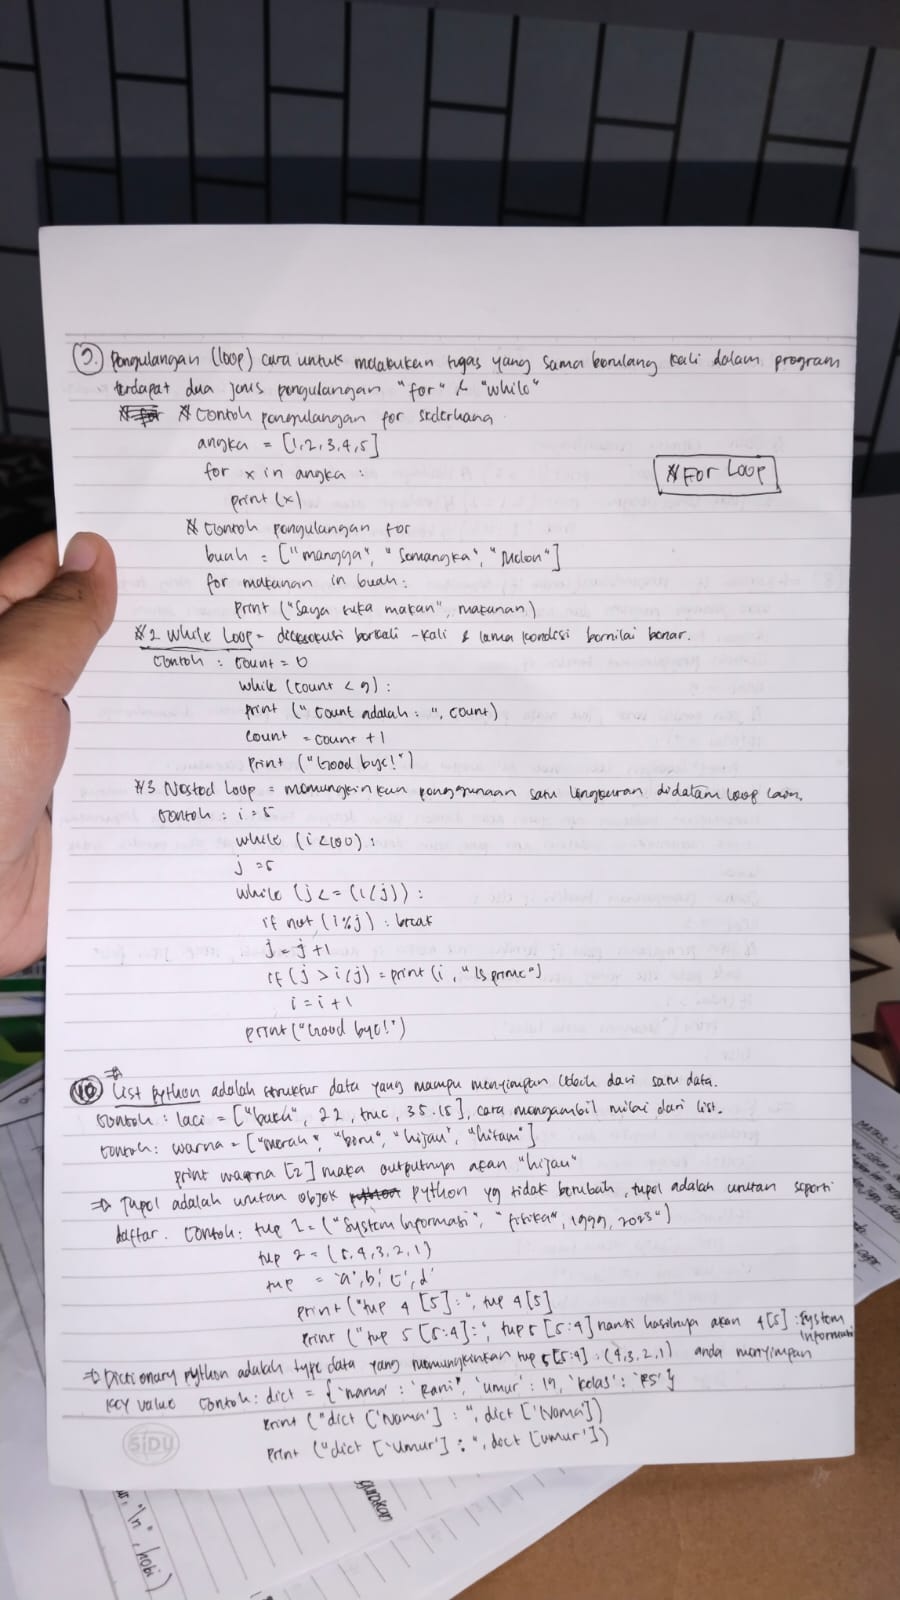 9. Pengulangan (loop) cara untuk melakukan tugas yang sama berulang kali dalam program
terdapat dua jenis pengulangan "for" & "while"
# Contoh pengulangan for sederhana
angka = [1,2,3,4,5]
for x in angka :
# For Loop
print (x)
# Contoh pengulangan for
buah = ["mangga", "Semangka", "Melon"]
for makanan in buah :
print ("Saya suka makan", makanan)
#2 While Loop = dieksekusi berkali-kali & lama kondisi bernilai benar.
Contoh : Count = 0
while (count < 9) :
print ("Count adalah : ", count)
Count = count + 1
print ("Good bye!")
#3 Nested Loop = memungkinkan penggunaan satu lingkaran didalam loop lain.
Contoh : i = 5
while (i<100) :
j = 5
while (j <= (i/j)) :
if not (i%j) : break
j = j + 1
if (j > i/j) = print (i, "is prime")
i = i + 1
print ("Good bye!")
10 List python adalah struktur data yang mampu menyimpan lebih dari satu data.
Contoh : laci = ["buku", 22, true, 35.15], cara mengambil nilai dari list.
Contoh : warna = ["merah", "biru", "hijau", "hitam"]
print warna [2] maka outputnya akan "hijau"
⇒ Tupel adalah urutan objek python yg tidak berubah, tupel adalah urutan seperti
daftar. Contoh : tup 1 = ("System Informasi", "fisika", 1999, 2023")
tup 2 = (5,4,3,2,1)
tup = 'a', b', c', d'
print ("tup 4 [5] : ", tup 4 [5]
print ("tup 5 [5:4] : ", tup 5 [5:4] nanti hasilnya akan 4[5] : System
Informasi
⇒ Dictionary python adalah type data yang memungkinkan tup 5[5:4] : (4,3,2,1) anda menyimpan
key value Contoh : dict = {'nama' : 'Rani', 'umur' : 19, 'kelas' : 'RS'}
print ("dict ['Nama'] : ", dict ['Nama'])
print ("dict ['Umur'] : ", dict [umur'])
SiDU
gunakan
"\n", hobi)